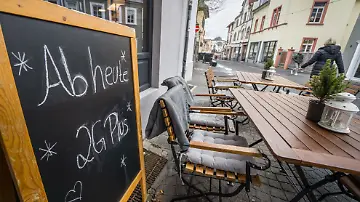 Ab heute
2G Plus